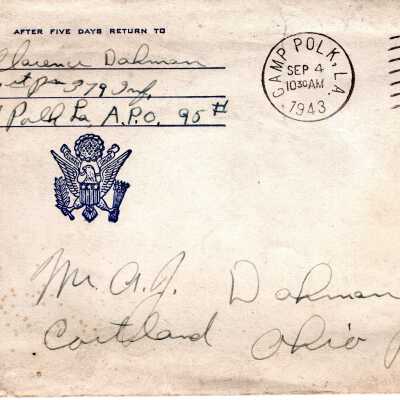 AFTER FIVE DAYS RETURN TO
Clarence Dahman
379 Inf,
Polk La, A.P.O. 95 #
CAMP POLK, LA.
SEP 4
10 30 AM
1943
Mr A. J. Dahman
Cortland Ohio